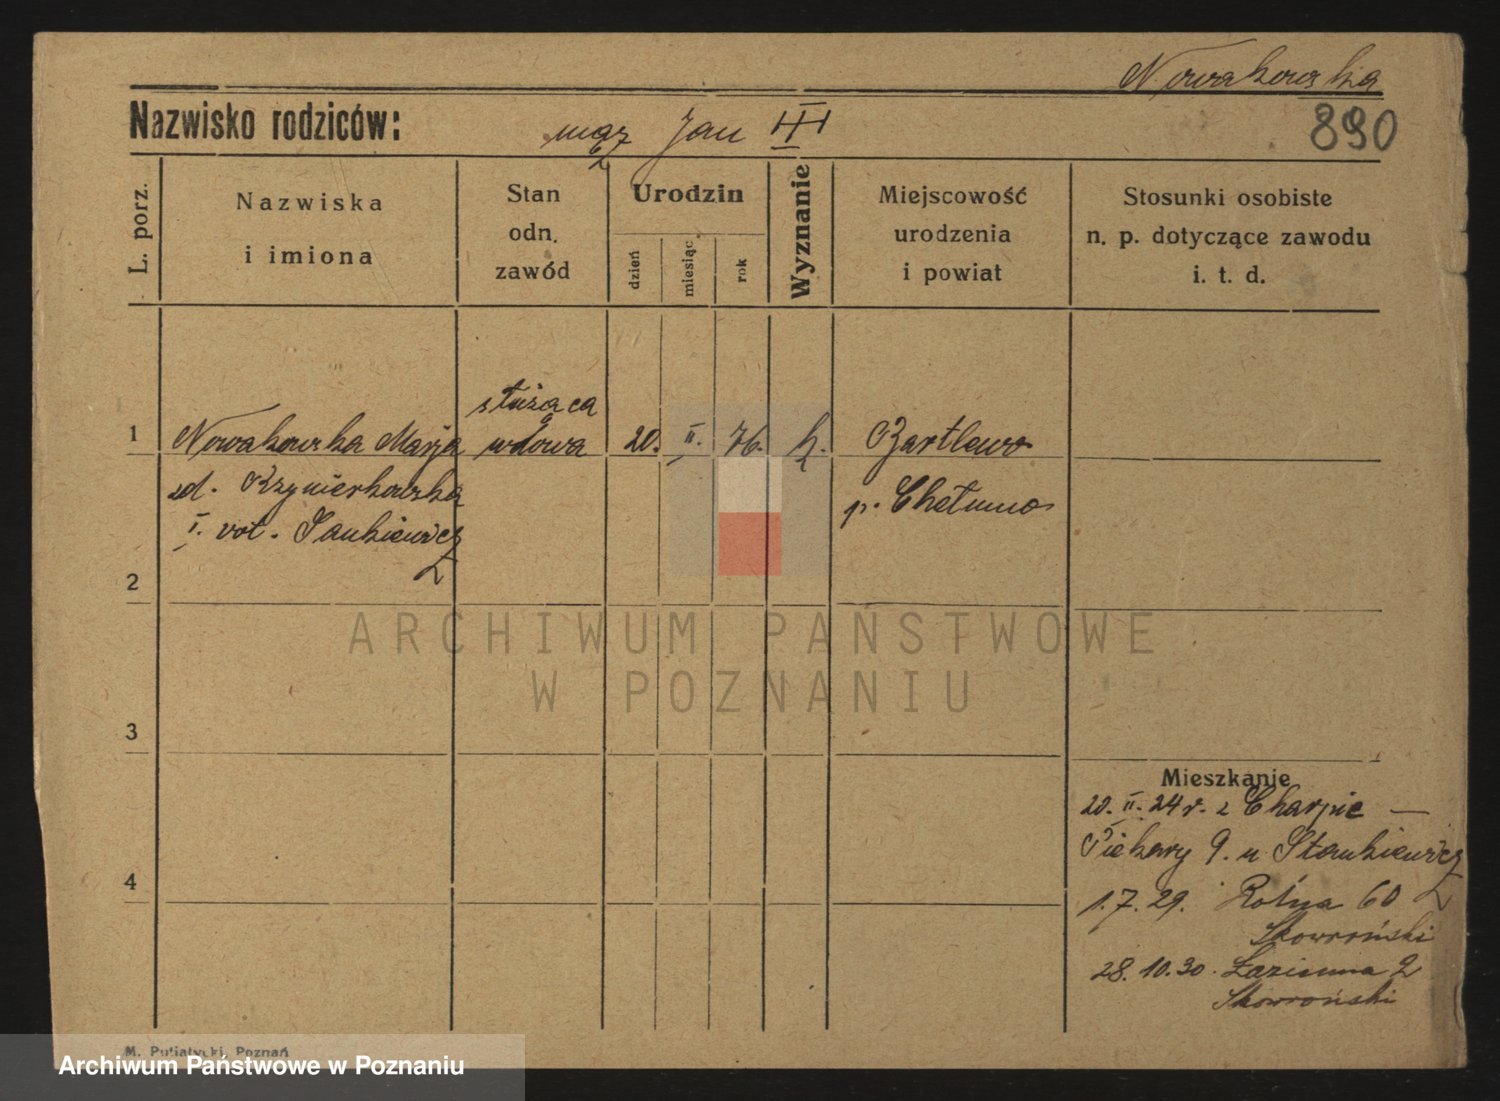 Nowakowska
Nazwisko rodziców: mąż Jan III
890
L. porz.
Nazwiska
i imiona
Stan
odn.
zawód
Urodzin
dzień
miesiąc
rok
Wyznanie
Miejscowość
urodzenia
i powiat
Stosunki osobiste
n. p. dotyczące zawodu
i. t. d.
służąca
1 Nowakowska Marja wdowa 20. II. 76. k. Bartlewo
zd. Krzynierkowska p. Chełmno
I. vot. Stankiewicz
2
3
Mieszkanie
20. II. 24 r. z
Piekary 9. u Stankiewicz
4
1.7.29. Rolna 60
Skowroński
28.10.30. Łazienna 2
Skowroński
M. Putiatycki, Poznań
ARCHIWUM PAŃSTWOWE
W POZNANIU
Archiwum Państwowe w Poznaniu